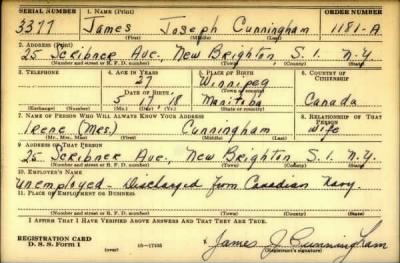 SERIAL NUMBER 1. NAME (Print) ORDER NUMBER
3377 James Joseph Cunningham 1181-A
(First) (Middle) (Last)
2. ADDRESS (Print)
25 Scribner Ave., New Brighton, S.I. N.Y.
(Number and street or R. F. D. number) (Town) (County) (State)
3. TELEPHONE 4. AGE IN YEARS 5. PLACE OF BIRTH 6. COUNTRY OF CITIZENSHIP
27 Winnipeg
DATE OF BIRTH (Town or county)
5 17 18 Manitoba Canada
(Exchange) (Number) (Mo.) (Day) (Yr.) (State or country)
7. NAME OF PERSON WHO WILL ALWAYS KNOW YOUR ADDRESS 8. RELATIONSHIP OF THAT PERSON
Irene (Mrs.) Cunningham Wife
(Mr., Mrs., Miss) (First) (Middle) (Last)
9. ADDRESS OF THAT PERSON
25 Scribner Ave., New Brighton, S.I. N.Y.
(Number and street or R. F. D. number) (Town) (County) (State)
10. EMPLOYER'S NAME
Unemployed - Discharged from Canadian Navy.
11. PLACE OF EMPLOYMENT OR BUSINESS
(Number and street or R. F. D. number) (Town) (County) (State)
I AFFIRM THAT I HAVE VERIFIED ABOVE ANSWERS AND THAT THEY ARE TRUE.
REGISTRATION CARD
D. S. S. Form 1 James J. Cunningham
(Registrant's signature)